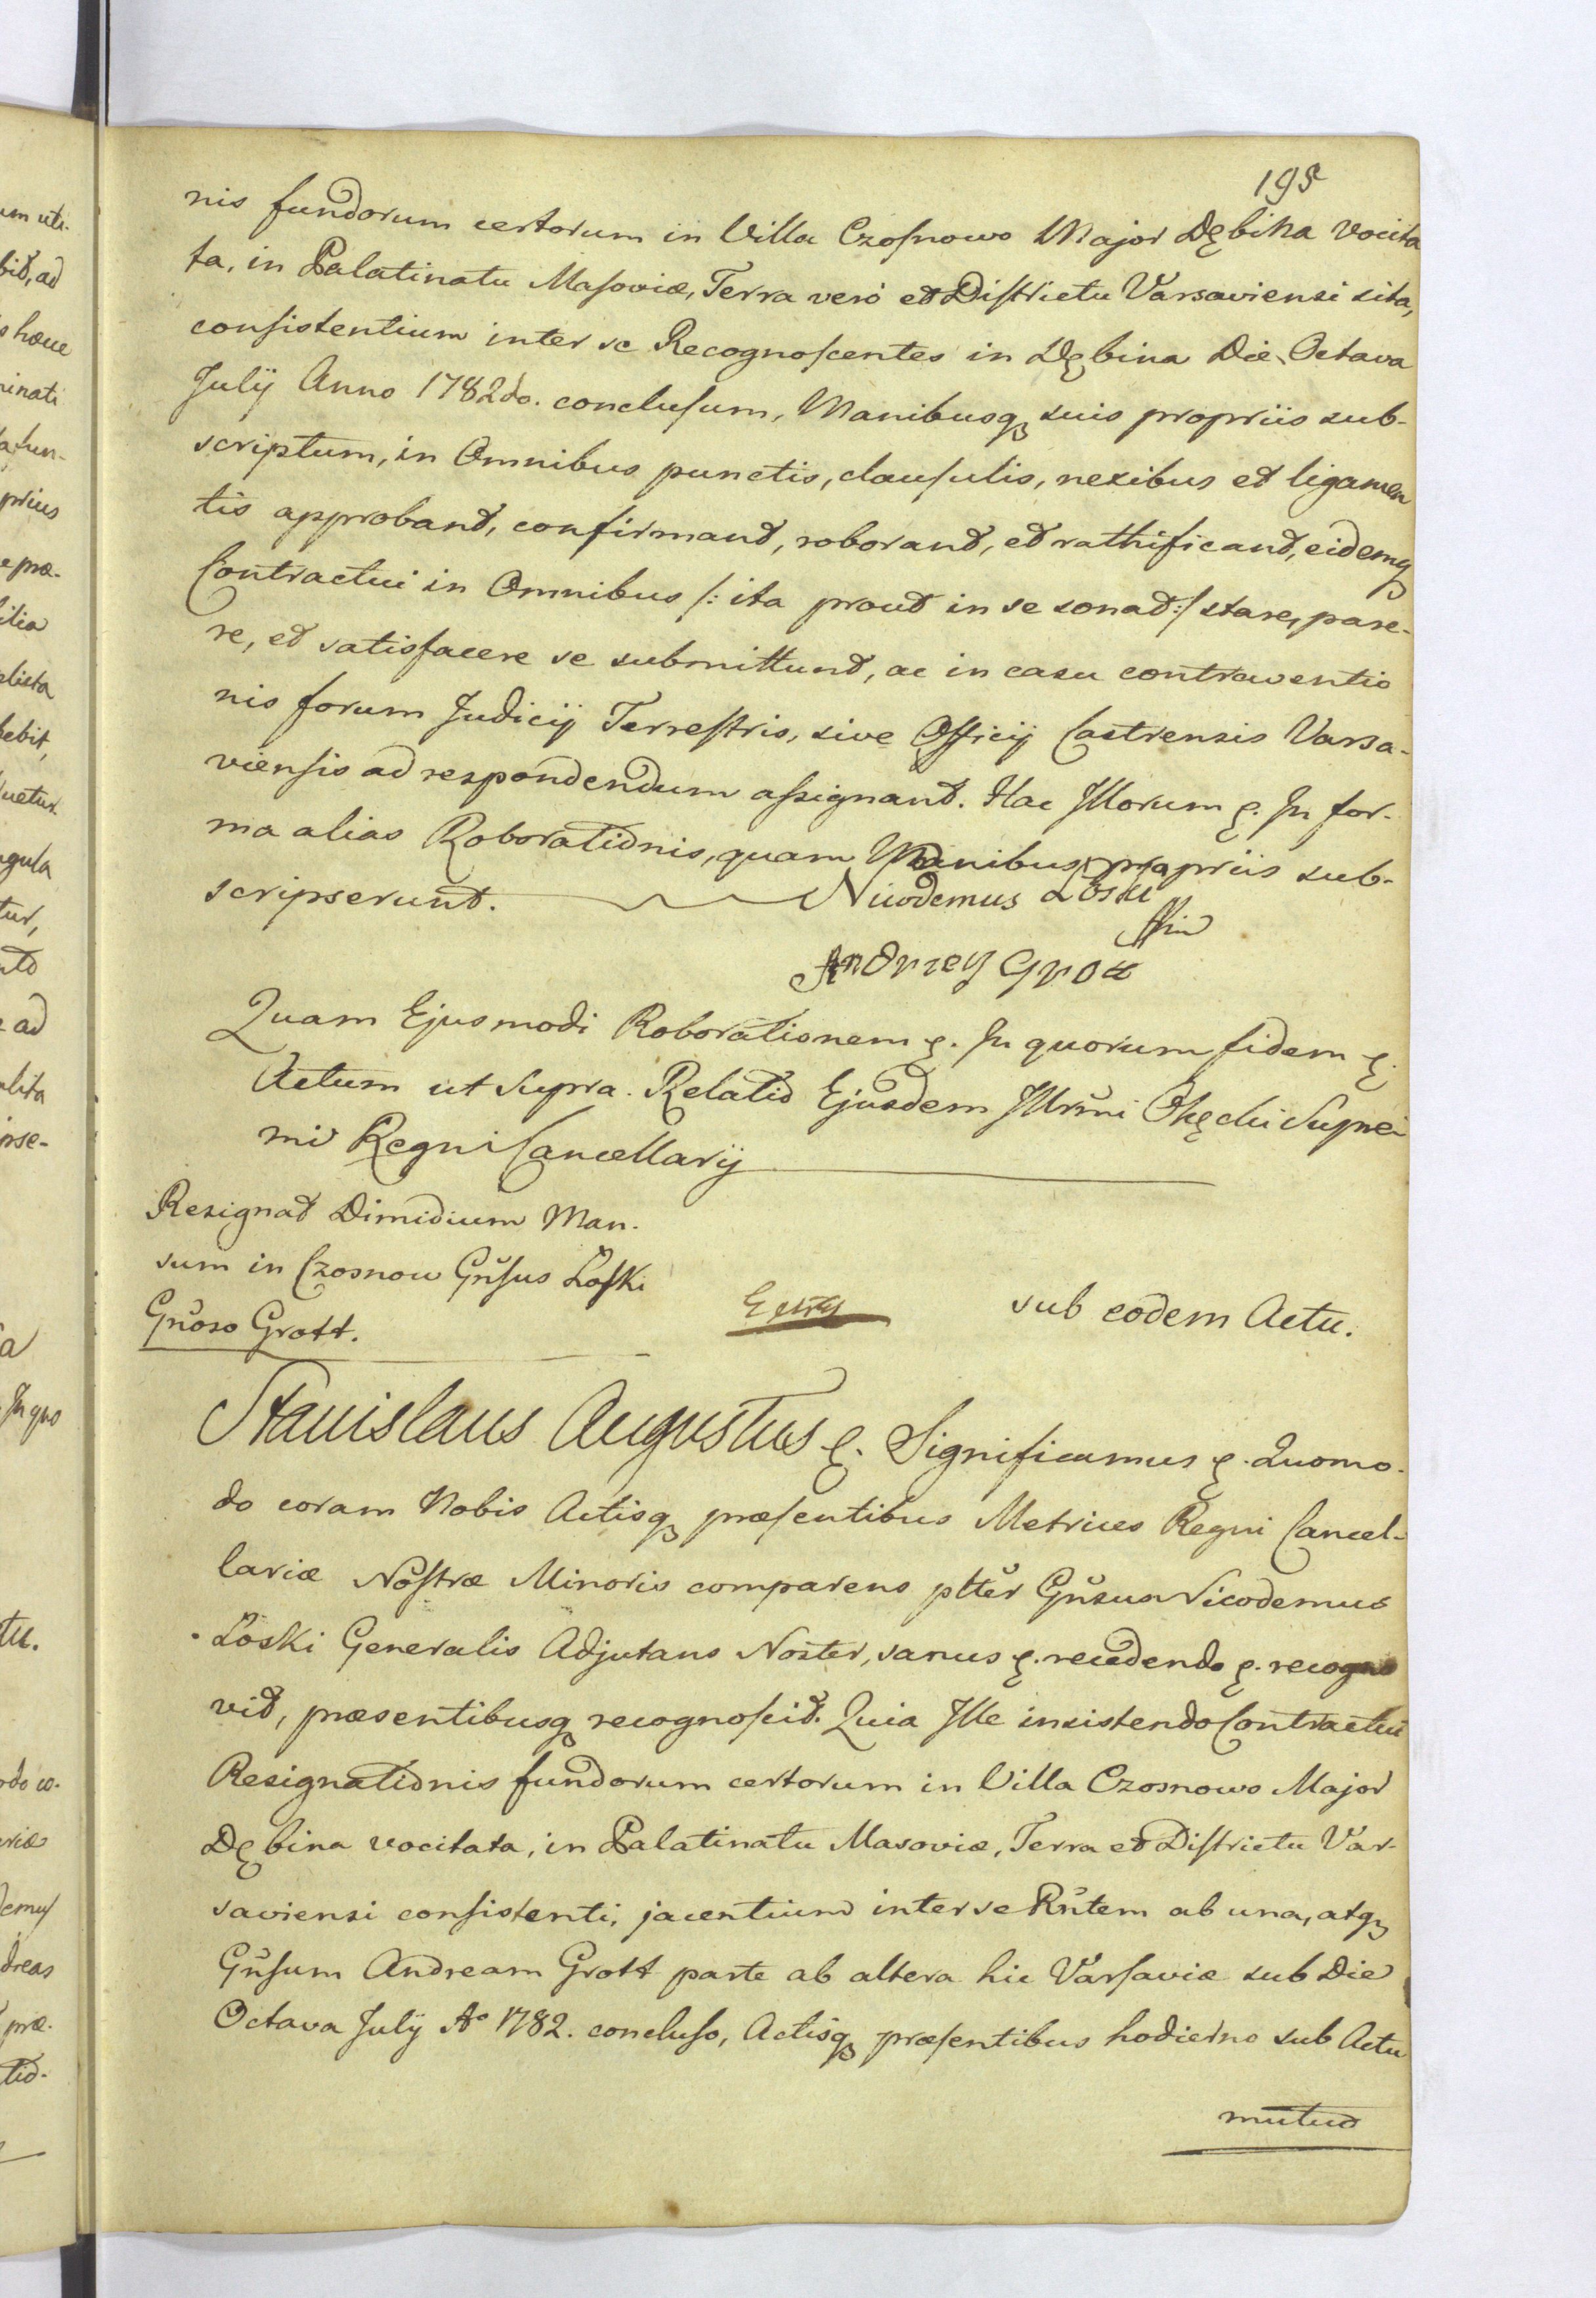 195
nis fundorum certorum in Villa Czosnowo Major Dębina vocita
ta, in Palatinatu Masoviæ, Terra verò et Districtu Varsaviensi sita,
consistentium inter se Recognoscentes in Dębina Die Octava
July Anno 1782do. conclusum, Manibusq, suis propriis sub-
scriptum, in Omnibus punctis, clausulis, nexibus et ligamen
tis approbant, confirmant, roborant, et rathificant, eidemq,
Contractui in Omnibus /: ita prout in se sonat :/ stare, pare-
re, et satisfacere se submittunt, ac in casu contraventio
nis forum Judicij Terrestris, sive Officij Castrensis Varsa-
viensis ad respondendum assignant. Hac Illorum &. In for-
ma alias Roborationis, quam Manibus propriis sub-
scripserunt. Nicodemus Łoski
Andrzey Grott
Quam Ejusmodi Roborationem &. In quorum fidem &.
Actum ut Supra. Relatio Ejusdem Illrmi Okęcki Supre-
mi Regni Cancellarij
Resignat Dimidium Man-
sum in Czosnow Gnsus Łoski
Gnoso Grott.
sub eodem Actu.
Stanislaus Augustus &. Significamus &. Quomo-
do coram Nobis Actisq, præsentibus Metrices Regni Cancel-
lariæ Nostræ Minoris comparens pltter Gnsus Nicodemus
Łoski Generalis Adjutans Noster, sanus &. recedendo &. recogno
vit, præsentibusq, recognoscit. Quia Ille insistendo Contractui
Resignationis fundorum certorum in Villa Czosnowo Major
Dębina vocitata, in Palatinatu Masoviæ, Terra et Districtu Var-
saviensi consistenti, jacentium inter se Rntem ab una, atq,
Gnsum Andream Grott parte ab altera hic Varsaviæ sub Die
Octava July Ao 1782. concluso, Actisq, præsentibus hodierno sub Actu
mutuo